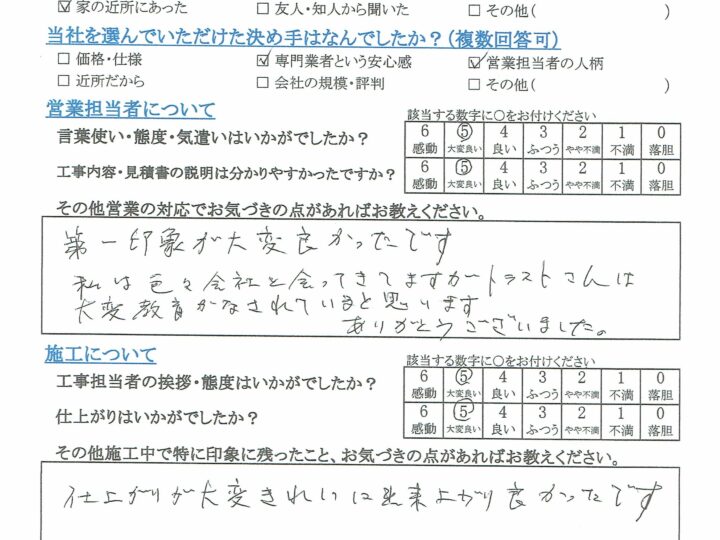 ☑ 家の近所にあった □ 友人・知人から聞いた □ その他( )
当社を選んでいただけた決め手はなんでしたか？(複数回答可)
□ 価格・仕様 ☑ 専門業者という安心感 ☑ 営業担当者の人柄
□ 近所だから □ 会社の規模・評判 □ その他( )
営業担当者について
該当する数字に〇をお付けください
言葉使い・態度・気遣いはいかがでしたか？
6 5 4 3 2 1 0
感動 大変良い 良い ふつう やや不満 不満 落胆
工事内容・見積書の説明は分かりやすかったですか？
6 5 4 3 2 1 0
感動 大変良い 良い ふつう やや不満 不満 落胆
その他営業の対応でお気づきの点があればお教えください。
第一印象が大変良かったです
私は色々会社と会ってきてますがトラストさんは
大変教育がなされていると思います
ありがとうございました。
施工について
該当する数字に〇をお付けください
工事担当者の挨拶・態度はいかがでしたか？
6 5 4 3 2 1 0
感動 大変良い 良い ふつう やや不満 不満 落胆
仕上がりはいかがでしたか？
6 5 4 3 2 1 0
感動 大変良い 良い ふつう やや不満 不満 落胆
その他施工中で特に印象に残ったこと、お気づきの点があればお教えください。
仕上がりが大変きれいに出来上がり良かったです